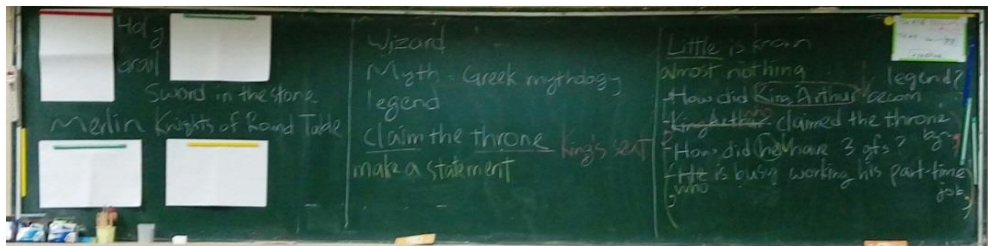 Holy
Grail
Sword in the stone
Merlin Knights of Round Table
Wizard
Myth - Greek mythology
legend
claim the throne King's seat
make a statement
Little is known
almost nothing legend?
- How did King Arthur becom
- King Arthur claimed the throne
- How did he have 3 gfs?
- He is busy working his part-time
who job